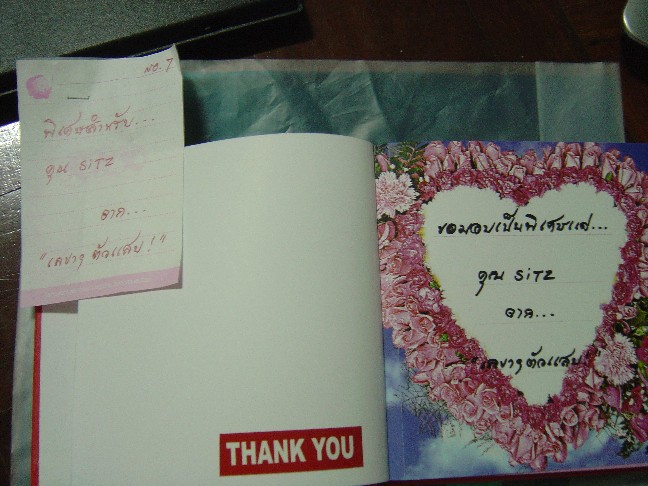 NO. 7
พิเศษสำหรับ...
คุณ SITZ
จาก...
"เลขาๆ ตัวแสบ!"
THANK YOU
ขอมอบเป็นพิเศษแด่...
คุณ SITZ
จาก...
"เลขาๆ ตัวแสบ"